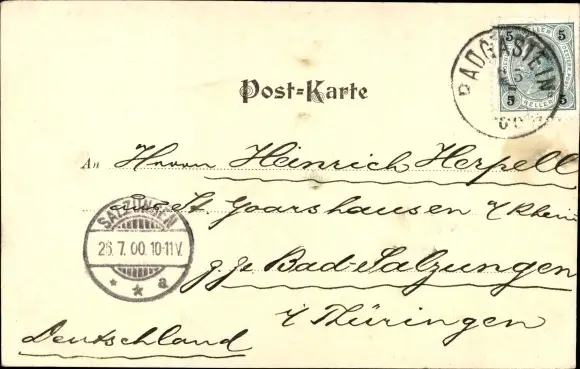 5 5
5 5
HELLER
BADGASTEIN
00
Post=Karte
An Herrn Heinrich Herpell
aus St. Goarshausen a/Rhein
SALZUNGEN
26.7.00.10-11V.
* * a
z. Zt. Bad-Salzungen
i/Thüringen
Deutschland